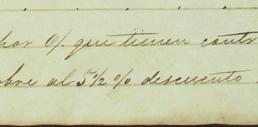 por % que tienen contr
obre al 5½ % descuento